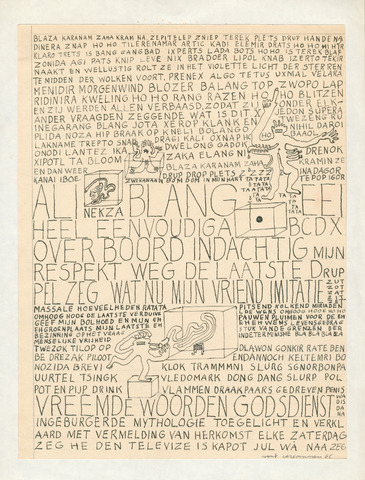 BLAZA KARANAM ZAHA KRAM NA ZEPITELEP ZNIEP TEREK PLETS DRUP HANDENA
DINERA ZNAP HO HO TILERENAMAR ARTIC KADI ELEMIR DRATS HO HO HI HTR
KLARO TRETS IS BANG GANGBAD IXPERTS LADA BOTS HOHO IS TEREK BLAF
ZONIDA AGI PATS KNIP LEVE NIK BRADOER LIPOL KNAB IZERTO TEKIR
NAAKT EN WELLUSTIG ROLT ZE IN HET VIOLETTE LICHT DER STERREN
TE MIDDEN DER WOLKEN VOORT. PRENEX ALGO TETUS UXMAL VELARA
MENIDIR MORGENWIND BLOZER BALANG TOP ZWOPO LAP
RIDINIRA KWELING HO HO RANG RAZEN HO HO BLITZEN
EN ZIJ WERDEN ALLEN VERBAASD, ZODAT ZIJ ONDER ELK-
ANDER VRAAGDEN ZEGGENDE WAT IS DIT. X EDON SUPERA
NEGARANG BLANG JOTA XEROP KLANK EN TWEZENG RU
PLIDA NOZA HIP BRAAK OP KNELI DOLANGO NIHIL LAAROI
LAKNAME TREPTO SNAP DRAGI KALI OXNAPI DAAOL
ONODI LANTEZ IKA DWELONG GADOK DRENOK
XIPOTL TA BLOOM ZAKA ELANG NI KRAMIN ZE
EN DAN WEER BLAZA KARANAM ZAHA INADAGOR
KANAI IBOE ZWEKANAAN DOM DOM IN MIJN HART TEPOP IGOR
DRUP DROP PLETS ZZZZ
TATATA
ALI BLANG EEI
NEKZA
HEEL EENVOUDIG A BCDY
OVERBOORD INDACHTIG MIJN
RESPEKT WEG DE LAATSTE DRUP
PEL ZEG WAT NU MIJN VRIEND IMITATIE
ZUT
ZOT
ZAT
MASSALE HOEVEELHEDEN RATATA
OMHOOG HOOG DE LAATSTE VERDUN
GEEF MIJN BOLHOED EN MIJN EN
BEZINNING OP HET VRAAG
MENSELIJKE VRIJHEID
TWEZOK TILOP OP
BE DREZAK PILOOT
NOZIDA BREVI
UURTEL TSINGK
POT EN PIJP DRINK
PITSEND KOLKEND MIRIADEN
PAUWEN PLUIMEN VOOR DE EH
STOR VAN DE GRENZEN DER
INDETERMINISME BLA BLA BLA BE
DLAWON GONKIR RATE BEN
ENDANNOCH KELTEMRI BO
KLOK TRAMMMNI SLURG SGNORBONPA
VLEDOMARK DONG DANG SLURP POL
VLAMMEN DRAAKPAARS GEDREVEN PENIS
VREEMDE WOORDEN GODSDIENST
WA
DIS
DA
NA
INGEBURGERDE MYTHOLOGIE TOEGELICHT EN VERKL
AARD MET VERMELDING VAN HERKOMST ELKE ZATERDAG
ZEG HE DEN TELEVIZE IS KAPOT JUL WA NAA ZEG